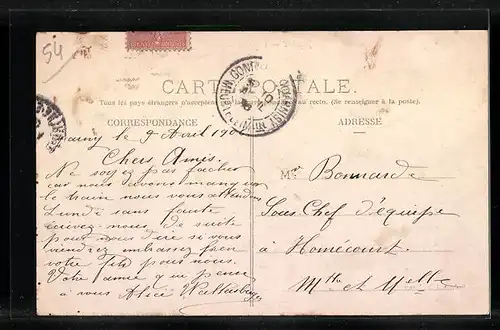 54
CARTE POSTALE.
Tous les pays étrangers n'acceptent pas la correspondance au recto. (Se renseigner à la poste).
CORRESPONDANCE
ADRESSE
le 9 Avril 190
Chers Amis.
Ne soyez pas fachés
car nous avons manqué
le train nous vous attendons
Lundi sans faute
écrivez-nous de suite
pour nous dire si vous
viendrez embrassez bien
votre fils pour nous.
Votre amie qui pense
à vous Alice
Mr Bonnarde
Sous Chef d'équipe
à Homécourt.
Mthe et Melle